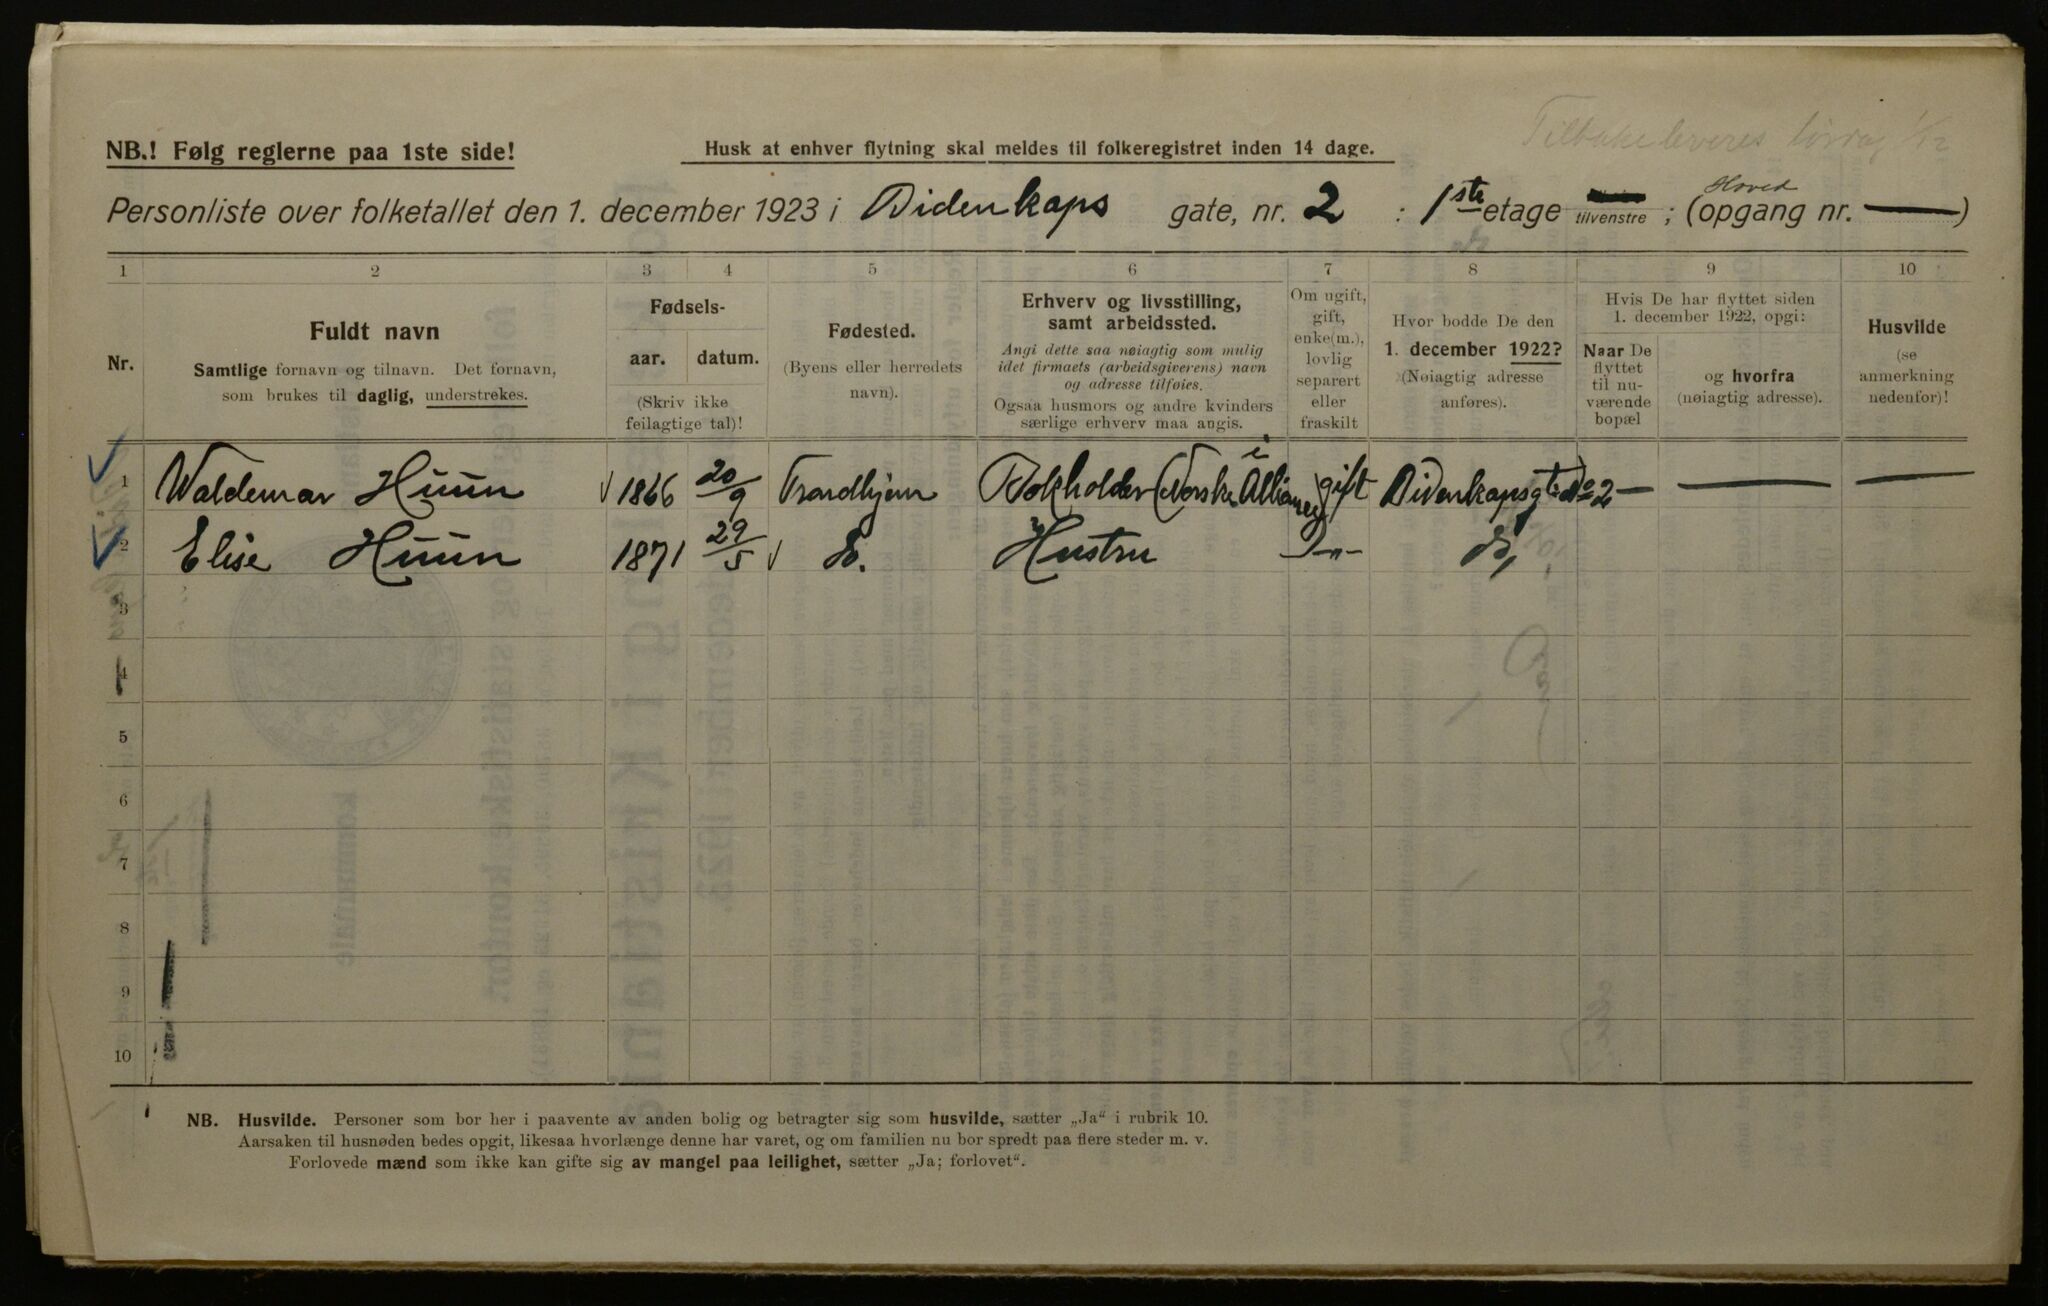 Tilbakeleveres lørdag 1/12
NB.! Følg reglerne paa 1ste side!
Husk at enhver flytning skal meldes til folkeregistret inden 14 dage.
Personliste over folketallet den 1. december 1923 i Bidenkaps gate, nr. 2 : 1ste etage tilvenstre ; (Hoved opgang nr. —)
1 2 3 4 5 6 7 8 9 10
Nr.
Fuldt navn
Samtlige fornavn og tilnavn. Det fornavn,
som brukes til daglig, understrekes.
Fødsels-
aar. datum.
(Skriv ikke
feilagtige tal)!
Fødested.
(Byens eller herredets
navn).
Erhverv og livsstilling,
samt arbeidssted.
Angi dette saa nøiagtig som mulig
idet firmaets (arbeidsgiverens) navn
og adresse tilføies.
Ogsaa husmors og andre kvinders
særlige erhverv maa angis.
Om ugift,
gift,
enke(m.),
lovlig
separert
eller
fraskilt
Hvor bodde De den
1. december 1922?
(Nøiagtig adresse
anføres).
Hvis De har flyttet siden
1. december 1922, opgi:
Naar De
flyttet
til nu-
værende
bopæl
og hvorfra
(nøiagtig adresse).
Husvilde
(se
anmerkning
nedenfor)!
1 Waldemar Huun 1866 20/9 Trondhjem Bokholder i (Norske Alliance) gift Bidenkapsgt. No 2 — — —
2 Elise Huun 1871 29/5 do. Hustru -"- do,
3
4
5
6
7
8
9
10
NB. Husvilde. Personer som bor her i paavente av anden bolig og betragter sig som husvilde, sætter „Ja" i rubrik 10.
Aarsaken til husnøden bedes opgit, likesaa hvorlænge denne har varet, og om familien nu bor spredt paa flere steder m. v.
Forlovede mænd som ikke kan gifte sig av mangel paa leilighet, sætter „Ja; forlovet".